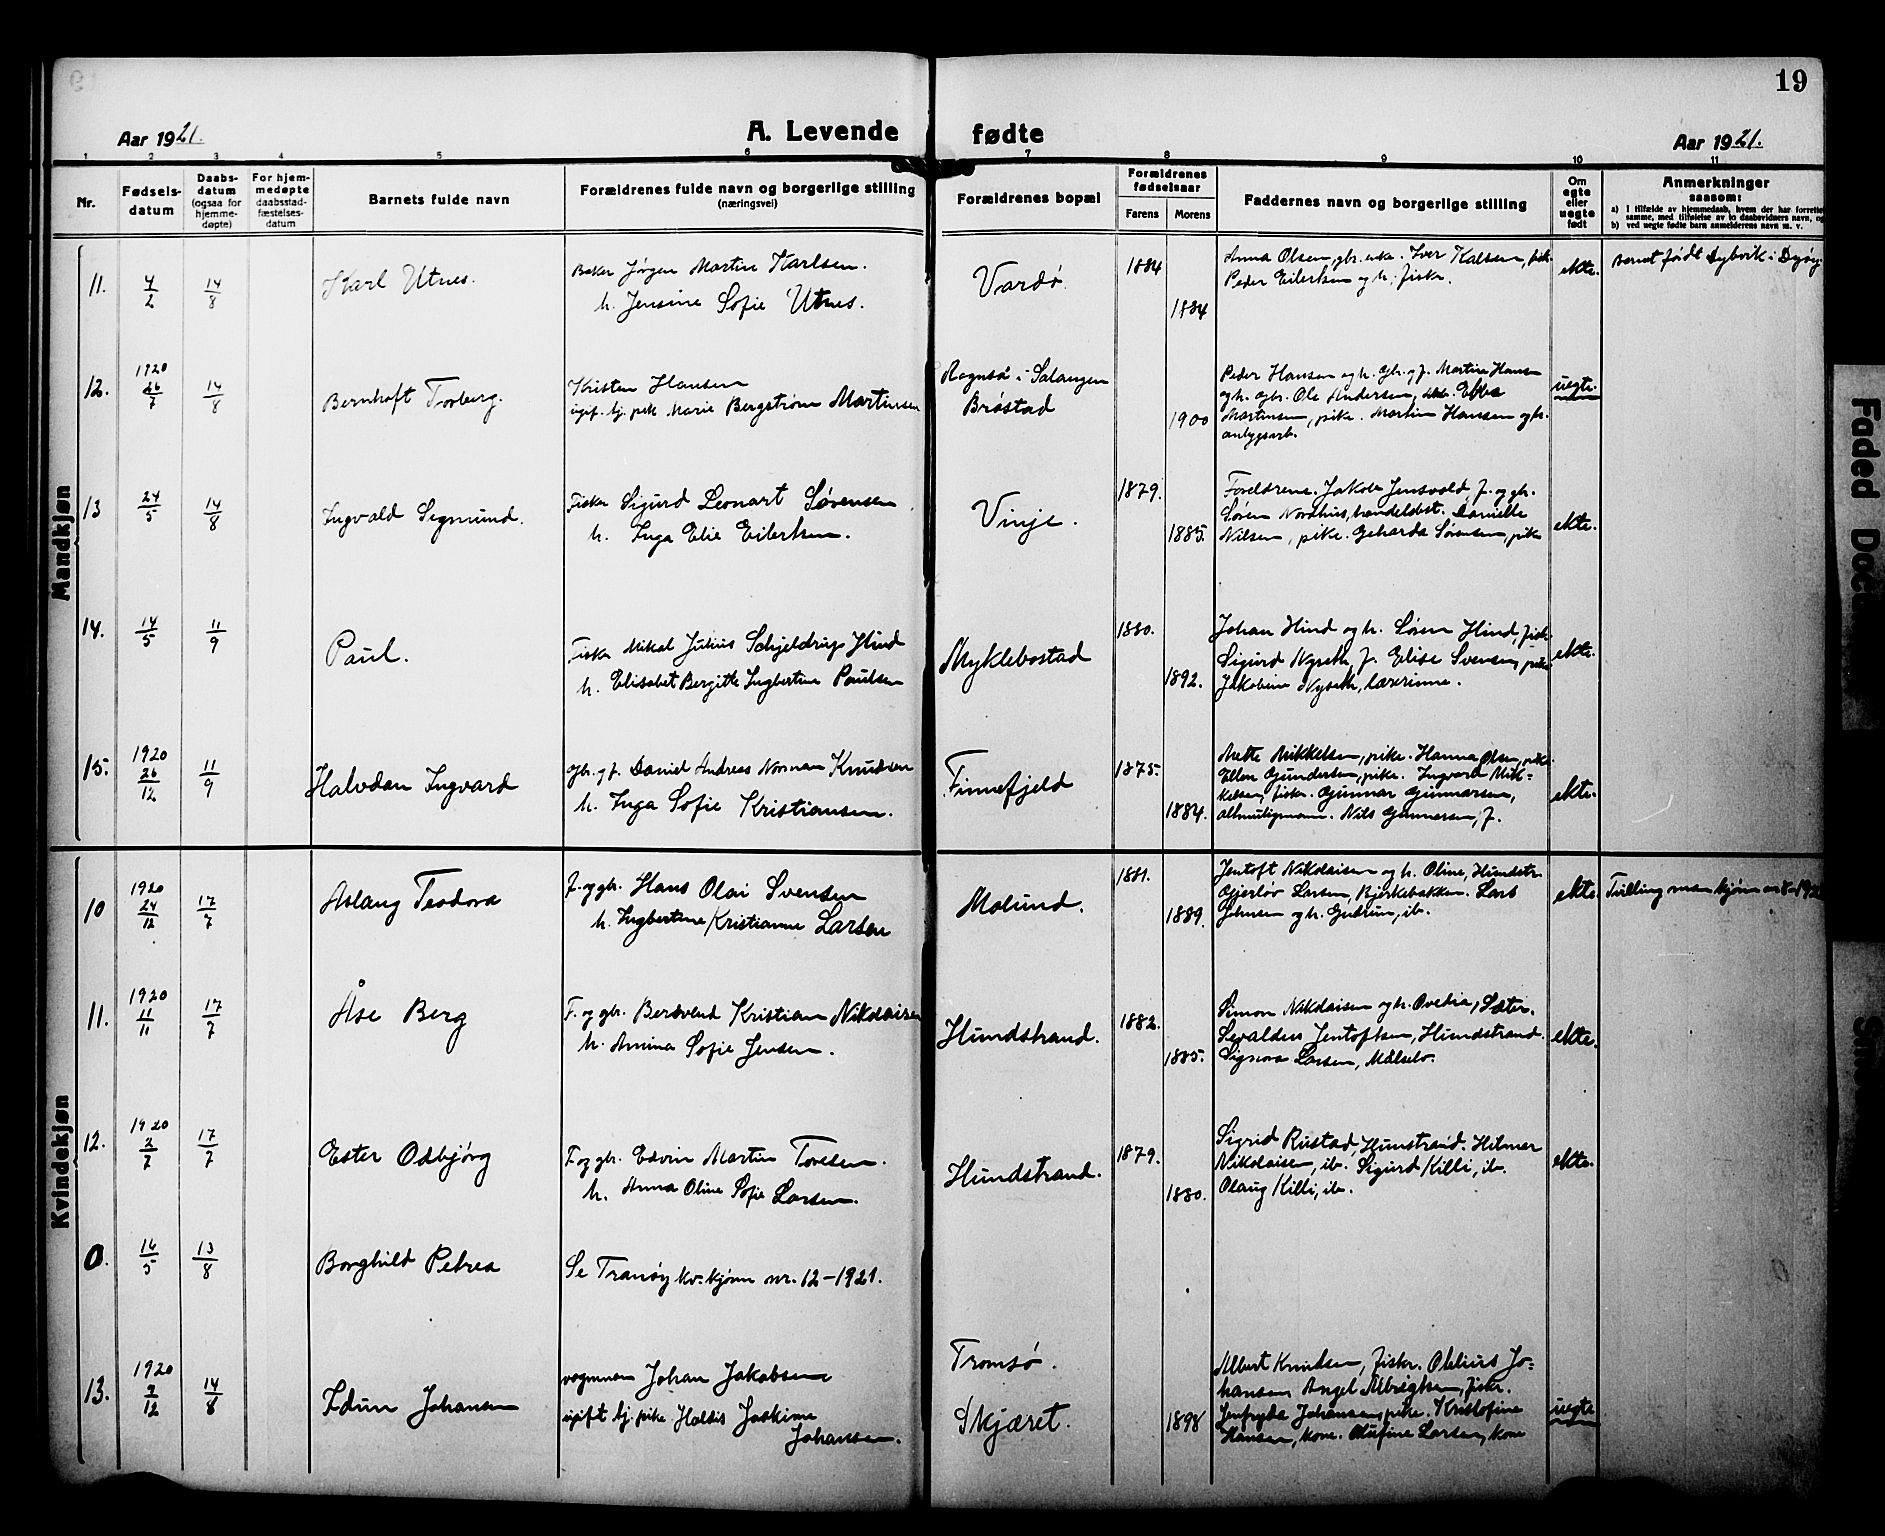 19
Aar 1921.
A. Levende fødte
Aar 1921.
1 2 3 4 5 6 7 8 9 10 11
Nr.
Fødsels-
datum
Daabs-
datum
(ogsaa for
hjemme-
døpte)
For hjem-
medøpte
daabsstad-
fæstelses-
datum
Barnets fulde navn
Forældrenes fulde navn og borgerlige stilling
(næringsvei)
Forældrenes bopæl
Forældrenes
fødselsaar
Farens
Morens
Faddernes navn og borgerlige stilling
Om
egte
eller
uegte
født
Anmerkninger
saasom:
a) I tilfælde av hjemmedaab, hvem der har forrettet
samme, med tilføielse av to daabsvidners navn, og
b) ved uegte fødte barn anmelderens navn m. v.
Mandkjøn
11.
4/2
14/8
Karl Utnes.
Baker Jørgen Martin Karlsen.
h. Jensine Sofie Utnes.
Vardø.
1884
1884
Anna Olsen, gbr. enke. Iver Kalsen, fisk.
Peder Eilertsen og h. fisker.
ekte.
barnet født Dybvik i Dyrøy
12.
1920
26/7
14/8
Bernhoft Torberg.
Kristen Hansen
ugift hj. pike Marie Bergstrøm Martinsen
Rognsø i Salangen
Brøstad
1900
Peder Hansen og h. gbr. g f. Martin Hansen
og h. gbr. Ole Andersen,
Martinsen, pike. Martin Hansen og h.
anlegsarb.
uegte.
13
24/5
14/8
Ingvald Sigmund.
Fisker Sigurd Leonart Sørensen
h. Inga Elie Eilertsen.
Vinje.
1879.
1885.
Foreldrene. Jakob Jensvold, f. og gbr.
Søren Nordhus, handelsbst. Danielle
Nilsen, pike. Geharda Sørensen, pike
ekte.
14.
14/5
11/9
Paul.
Fisker Mikal Julius Schjeldrup Hind
h. Elisabet Bergitte Ingbertine Paulsen
Myklebostad
1880.
1892.
Johan Hind og h. Søren Hind, fisk.
Sigurd Nyseth, f. Elise Svensen, pike
Jakobine Nyseth, lærerinne.
ekte.
15.
1920
26/12
11/9
Halvdan Ingvard
gbr. g f. Daniel Andreas Norman Knudsen
h. Inga Sofie Kristiansen.
Finnefjeld
1875.
1884.
Mette Mikkelsen, pike. Hanna Olsen, pike
Ellen Gundersen, pike. Ingvard Mik-
kelsen, fisker. Gunnar Gunnarsen,
altmuligmann. Nils Gunnarsen, f.
ekte.
Kvindekjøn
10
1920
24/12
17/7
Aslaug Teodora
f. og gbr. Hans Olai Svensen
h. Ingbertine Kristianne Larsen
Molund.
1881.
1889.
Jentoft Nikolaisen og h. Oline, Hundstr.
Gjerløv Larsen, Bjerkebakken. Lars
Johnsen og h. Gudrun, ib.
ekte.
Tvilling mannkjønn nr 8-1921
11.
1920
11/11
17/7
Åse Berg
F. og gbr. Bersvend Kristian Nikolaisen
h. Anna Sofie Jensen.
Hundstrand.
1882.
1885.
Simon Nikolaisen og h. Ovedia, Sæter.
Sevaldus Jentoftsen, Hundstrand.
Signora Larsen, Målselv.
ekte.
12.
1920
2/7
17/7
Ester Odbjørg
F. og gbr. Edvin Martin Toresen.
h. Anna Oline Sofie Larsen.
Hundstrand.
1879.
1880.
Sigrid Rustad, Hunstrand. Hilmar
Nikolaisen, ib. Sigurd Killi, ib.
Olaug Killi, ib.
ekte.
0.
16/5
13/8
Borghild Petrea
Se Tranøy kv.kjønn nr. 12-1921.
13.
1920
9/12
14/8
Idun Johansen
vognmann Johan Jakobsen
ugift hj. pike Haldis Joakime
Johansen.
Tromsø.
Skjæret.
1898
Albert Knudsen, fisker. Obelius Jo-
hansen, Angel Albrigtsen, fisker.
Jenfryda Johansen, pike. Kristofine
Hansen, kone. Olufine Larsen, kone
uegte
Faded Doc